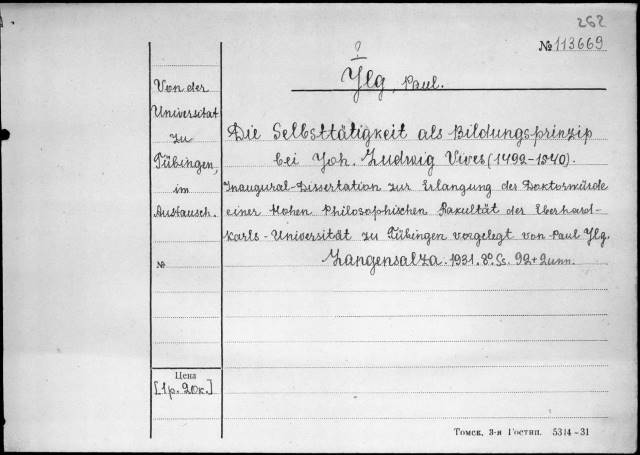 262
№ 113669
?
Ylg, Paul.
Von der
Universität
zu
Tübingen,
im
Austausch.
№
Цена
[1р. 20к.]
Die Selbsttätigkeit als Bildungsprinzip
bei Joh. Ludwig Vives (1492-1540).
Inaugural-Dissertation zur Erlangung der Doktorwürde
einer Hohen Philosophischen Fakultät der Eberhard-
Karls-Universität zu Tübingen vorgelegt von Paul Ylg.
Langensalza. 1931. 8º. Ss. 92+2unn.
Томск, 3-я Гостип. 5314-31